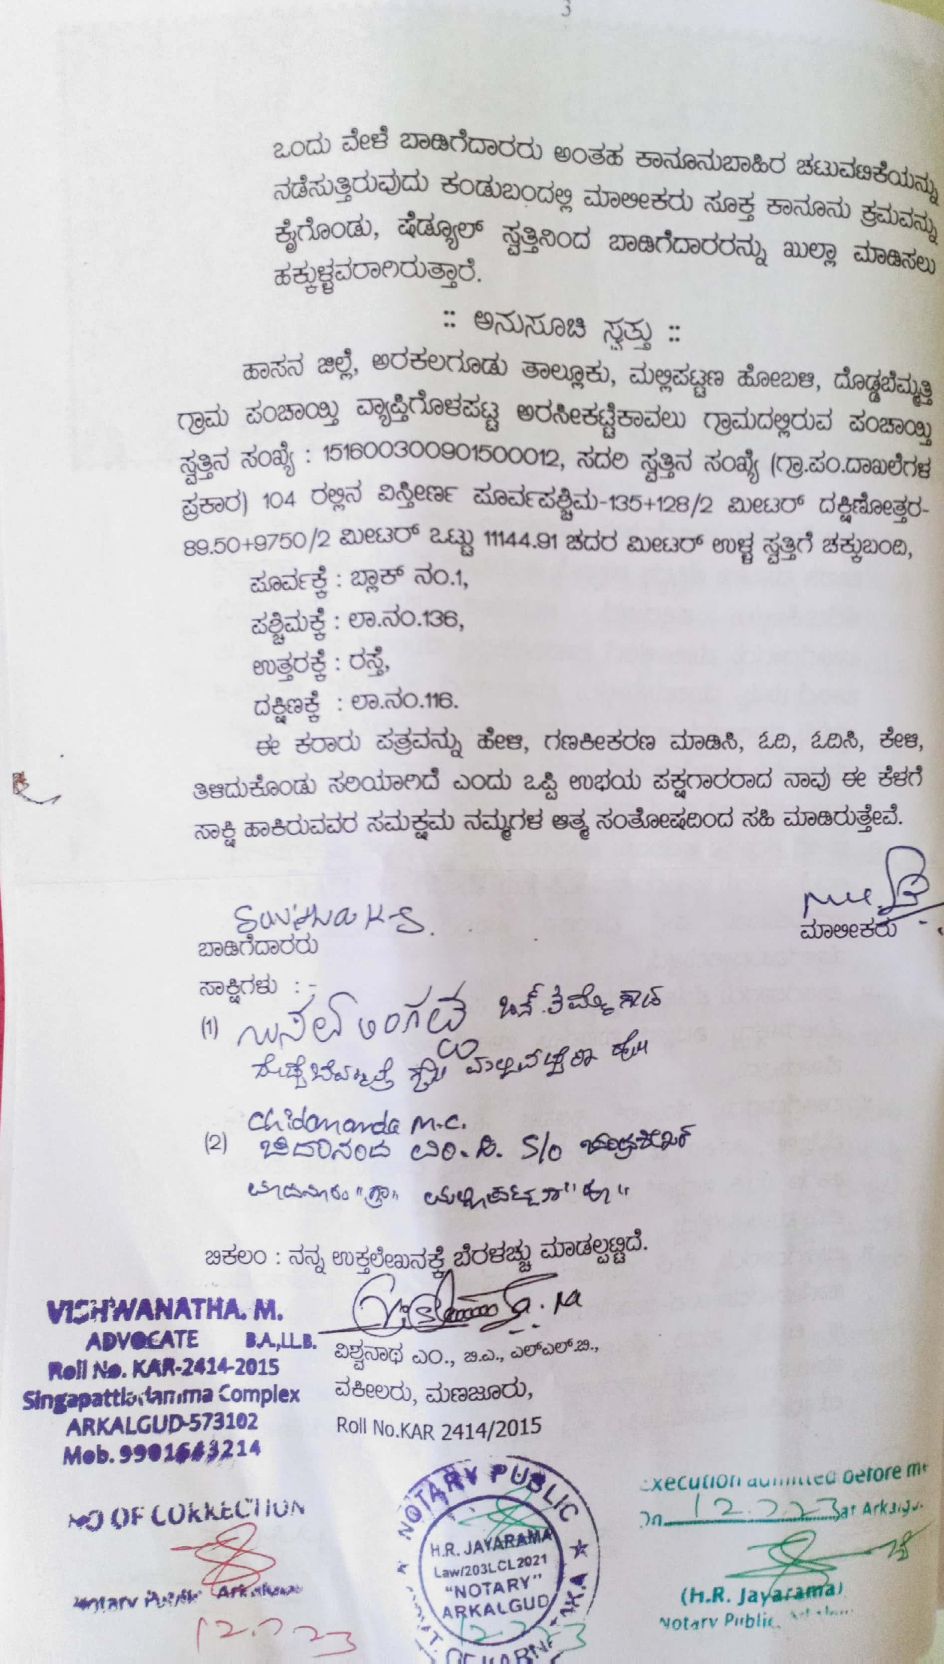 3
ಒಂದು ವೇಳೆ ಬಾಡಿಗೆದಾರರು ಅಂತಹ ಕಾನೂನುಬಾಹಿರ ಚಟುವಟಿಕೆಯನ್ನು
ನಡೆಸುತ್ತಿರುವುದು ಕಂಡುಬಂದಲ್ಲಿ ಮಾಲೀಕರು ಸೂಕ್ತ ಕಾನೂನು ಕ್ರಮವನ್ನು
ಕೈಗೊಂಡು, ಷೆಡ್ಯೂಲ್ ಸ್ವತ್ತಿನಿಂದ ಬಾಡಿಗೆದಾರರನ್ನು ಖುಲ್ಲಾ ಮಾಡಿಸಲು
ಹಕ್ಕುಳ್ಳವರಾಗಿರುತ್ತಾರೆ.
:: ಅನುಸೂಚಿ ಸ್ವತ್ತು ::
ಹಾಸನ ಜಿಲ್ಲೆ, ಅರಕಲಗೂಡು ತಾಲ್ಲೂಕು, ಮಲ್ಲಿಪಟ್ಟಣ ಹೋಬಳಿ, ದೊಡ್ಡಬೆಮ್ಮತ್ತಿ
ಗ್ರಾಮ ಪಂಚಾಯ್ತಿ ವ್ಯಾಪ್ತಿಗೊಳಪಟ್ಟ ಅರಸೀಕಟ್ಟೆಕಾವಲು ಗ್ರಾಮದಲ್ಲಿರುವ ಪಂಚಾಯ್ತಿ
ಸ್ವತ್ತಿನ ಸಂಖ್ಯೆ : 151600300901500012, ಸದರಿ ಸ್ವತ್ತಿನ ಸಂಖ್ಯೆ (ಗ್ರಾ.ಪಂ.ದಾಖಲೆಗಳ
ಪ್ರಕಾರ) 104 ರಲ್ಲಿನ ವಿಸ್ತೀರ್ಣ ಪೂರ್ವಪಶ್ಚಿಮ-135+128/2 ಮೀಟರ್ ದಕ್ಷಿಣೋತ್ತರ-
89.50+9750/2 ಮೀಟರ್ ಒಟ್ಟು 11144.91 ಚದರ ಮೀಟರ್ ಉಳ್ಳ ಸ್ವತ್ತಿಗೆ ಚಕ್ಕುಬಂದಿ,
ಪೂರ್ವಕ್ಕೆ : ಬ್ಲಾಕ್ ನಂ.1,
ಪಶ್ಚಿಮಕ್ಕೆ : ಲಾ.ನಂ.136,
ಉತ್ತರಕ್ಕೆ : ರಸ್ತೆ,
ದಕ್ಷಿಣಕ್ಕೆ : ಲಾ.ನಂ.116.
ಈ ಕರಾರು ಪತ್ರವನ್ನು ಹೇಳಿ, ಗಣಕೀಕರಣ ಮಾಡಿಸಿ, ಓದಿ, ಓದಿಸಿ, ಕೇಳಿ,
ತಿಳಿದುಕೊಂಡು ಸರಿಯಾಗಿದೆ ಎಂದು ಒಪ್ಪಿ ಉಭಯ ಪಕ್ಷಗಾರರಾದ ನಾವು ಈ ಕೆಳಗೆ
ಸಾಕ್ಷಿ ಹಾಕಿರುವವರ ಸಮಕ್ಷಮ ನಮ್ಮಗಳ ಆತ್ಮ ಸಂತೋಷದಿಂದ ಸಹಿ ಮಾಡಿರುತ್ತೇವೆ.
K-S.
ಬಾಡಿಗೆದಾರರು
ಮಾಲೀಕರು
ಸಾಕ್ಷಿಗಳು :-
(1)
Chidananda M.C.
(2) ಚಿದಾನಂದ ಎಂ.ಸಿ. S/o ಚಂದ್ರಶೇಖರ್
ಬಿಕಲಂ : ನನ್ನ ಉಕ್ತಲೇಖನಕ್ಕೆ ಬೆರಳಚ್ಚು ಮಾಡಲ್ಪಟ್ಟಿದೆ.
VISHWANATHA. M.
ADVOCATE B.A,LL.B.
Roll No. KAR-2414-2015
Complex
ARKALGUD-573102
Mob.
ವಿಶ್ವನಾಥ ಎಂ., ಬಿ.ಎ., ಎಲ್ಎಲ್.ಬಿ.,
ವಕೀಲರು, ಮಣಜೂರು,
Roll No.KAR 2414/2015
NO OF CORRECTION
Notary Public Arkalgud
12.7.23
NOTARY PUBLIC
H.R. JAYARAMA
Law/203LCL2021
"NOTARY"
ARKALGUD
12.7.23
Execution admitted before me
On 12.7.23 at Arkalgud
(H.R. Jayarama)
Notary Public,